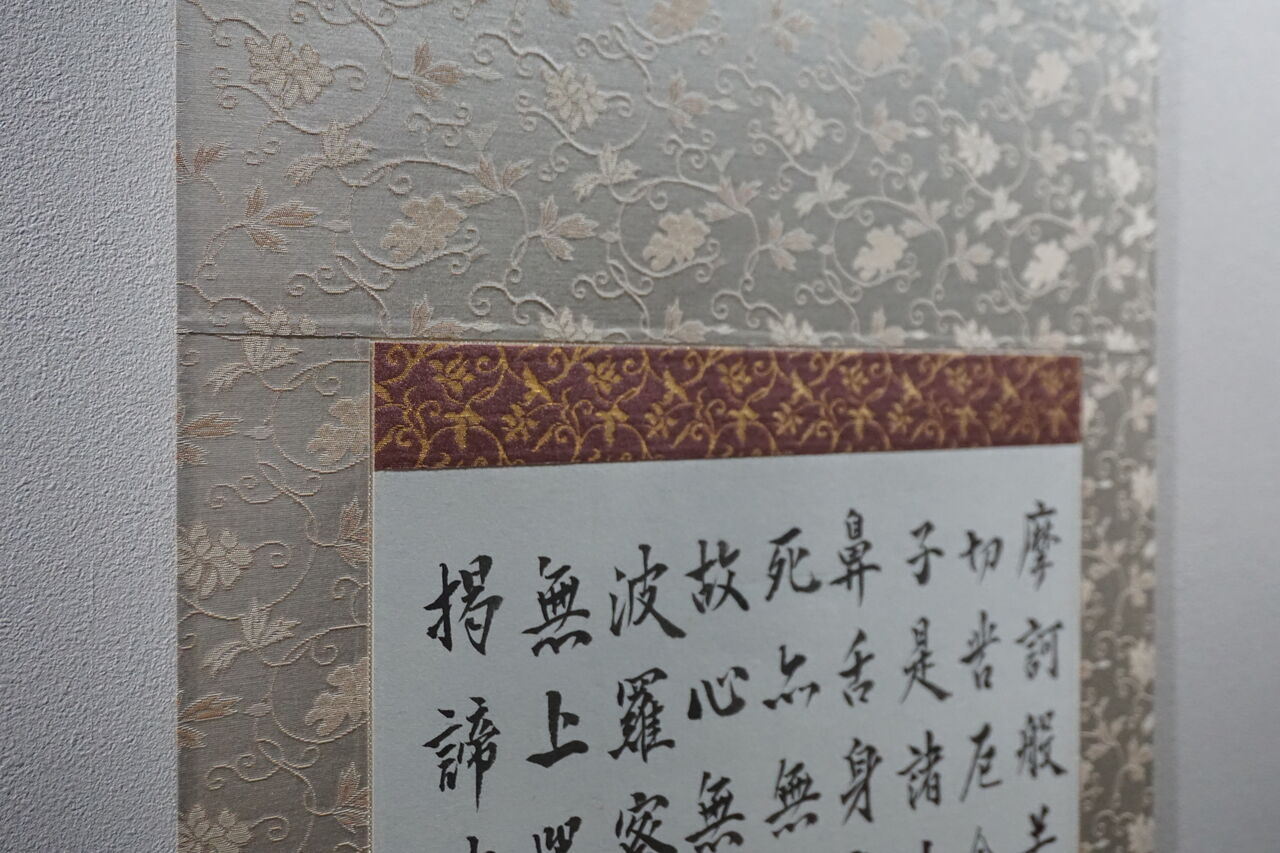 摩訶般
切苦厄
子是諸
鼻舌身
死亦無
故心無
波羅密
無上
揭諦